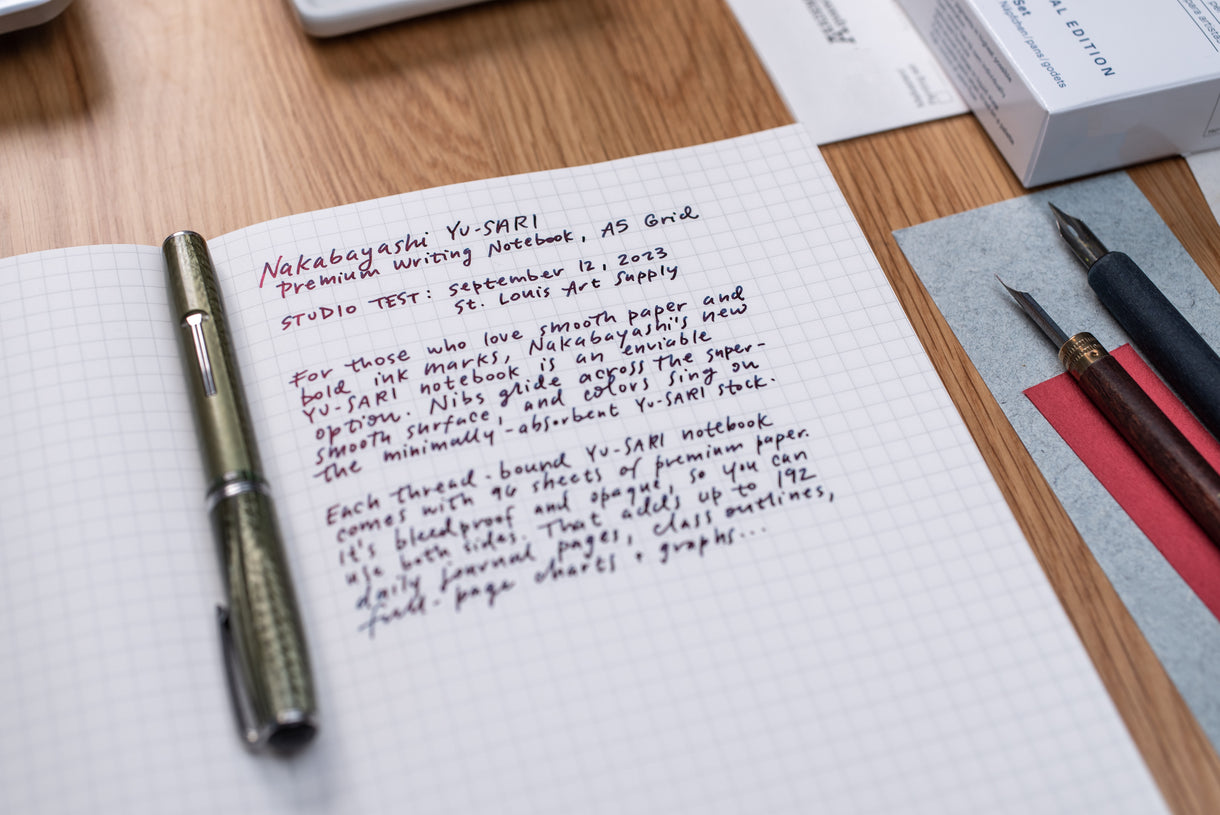 Nakabayashi Yu-SARI
Premium Writing Notebook, A5 Grid
STUDIO TEST: September 12, 2023
St. Louis Art Supply
For those who love smooth paper and
bold ink marks, Nakabayashi's new
YU-SARI notebook is an enviable
option. Nibs glide across the super-
smooth surface, and colors sing on
the minimally-absorbent Yu-SARI stock.
Each thread-bound YU-SARI notebook
comes with 96 sheets of premium paper.
It's bleedproof and opaque, so you can
use both sides. That adds up to 192
daily journal pages, class outlines,
full-page charts + graphs...
AL EDITION
Set
Näpfchen/pans/godets
para artistas